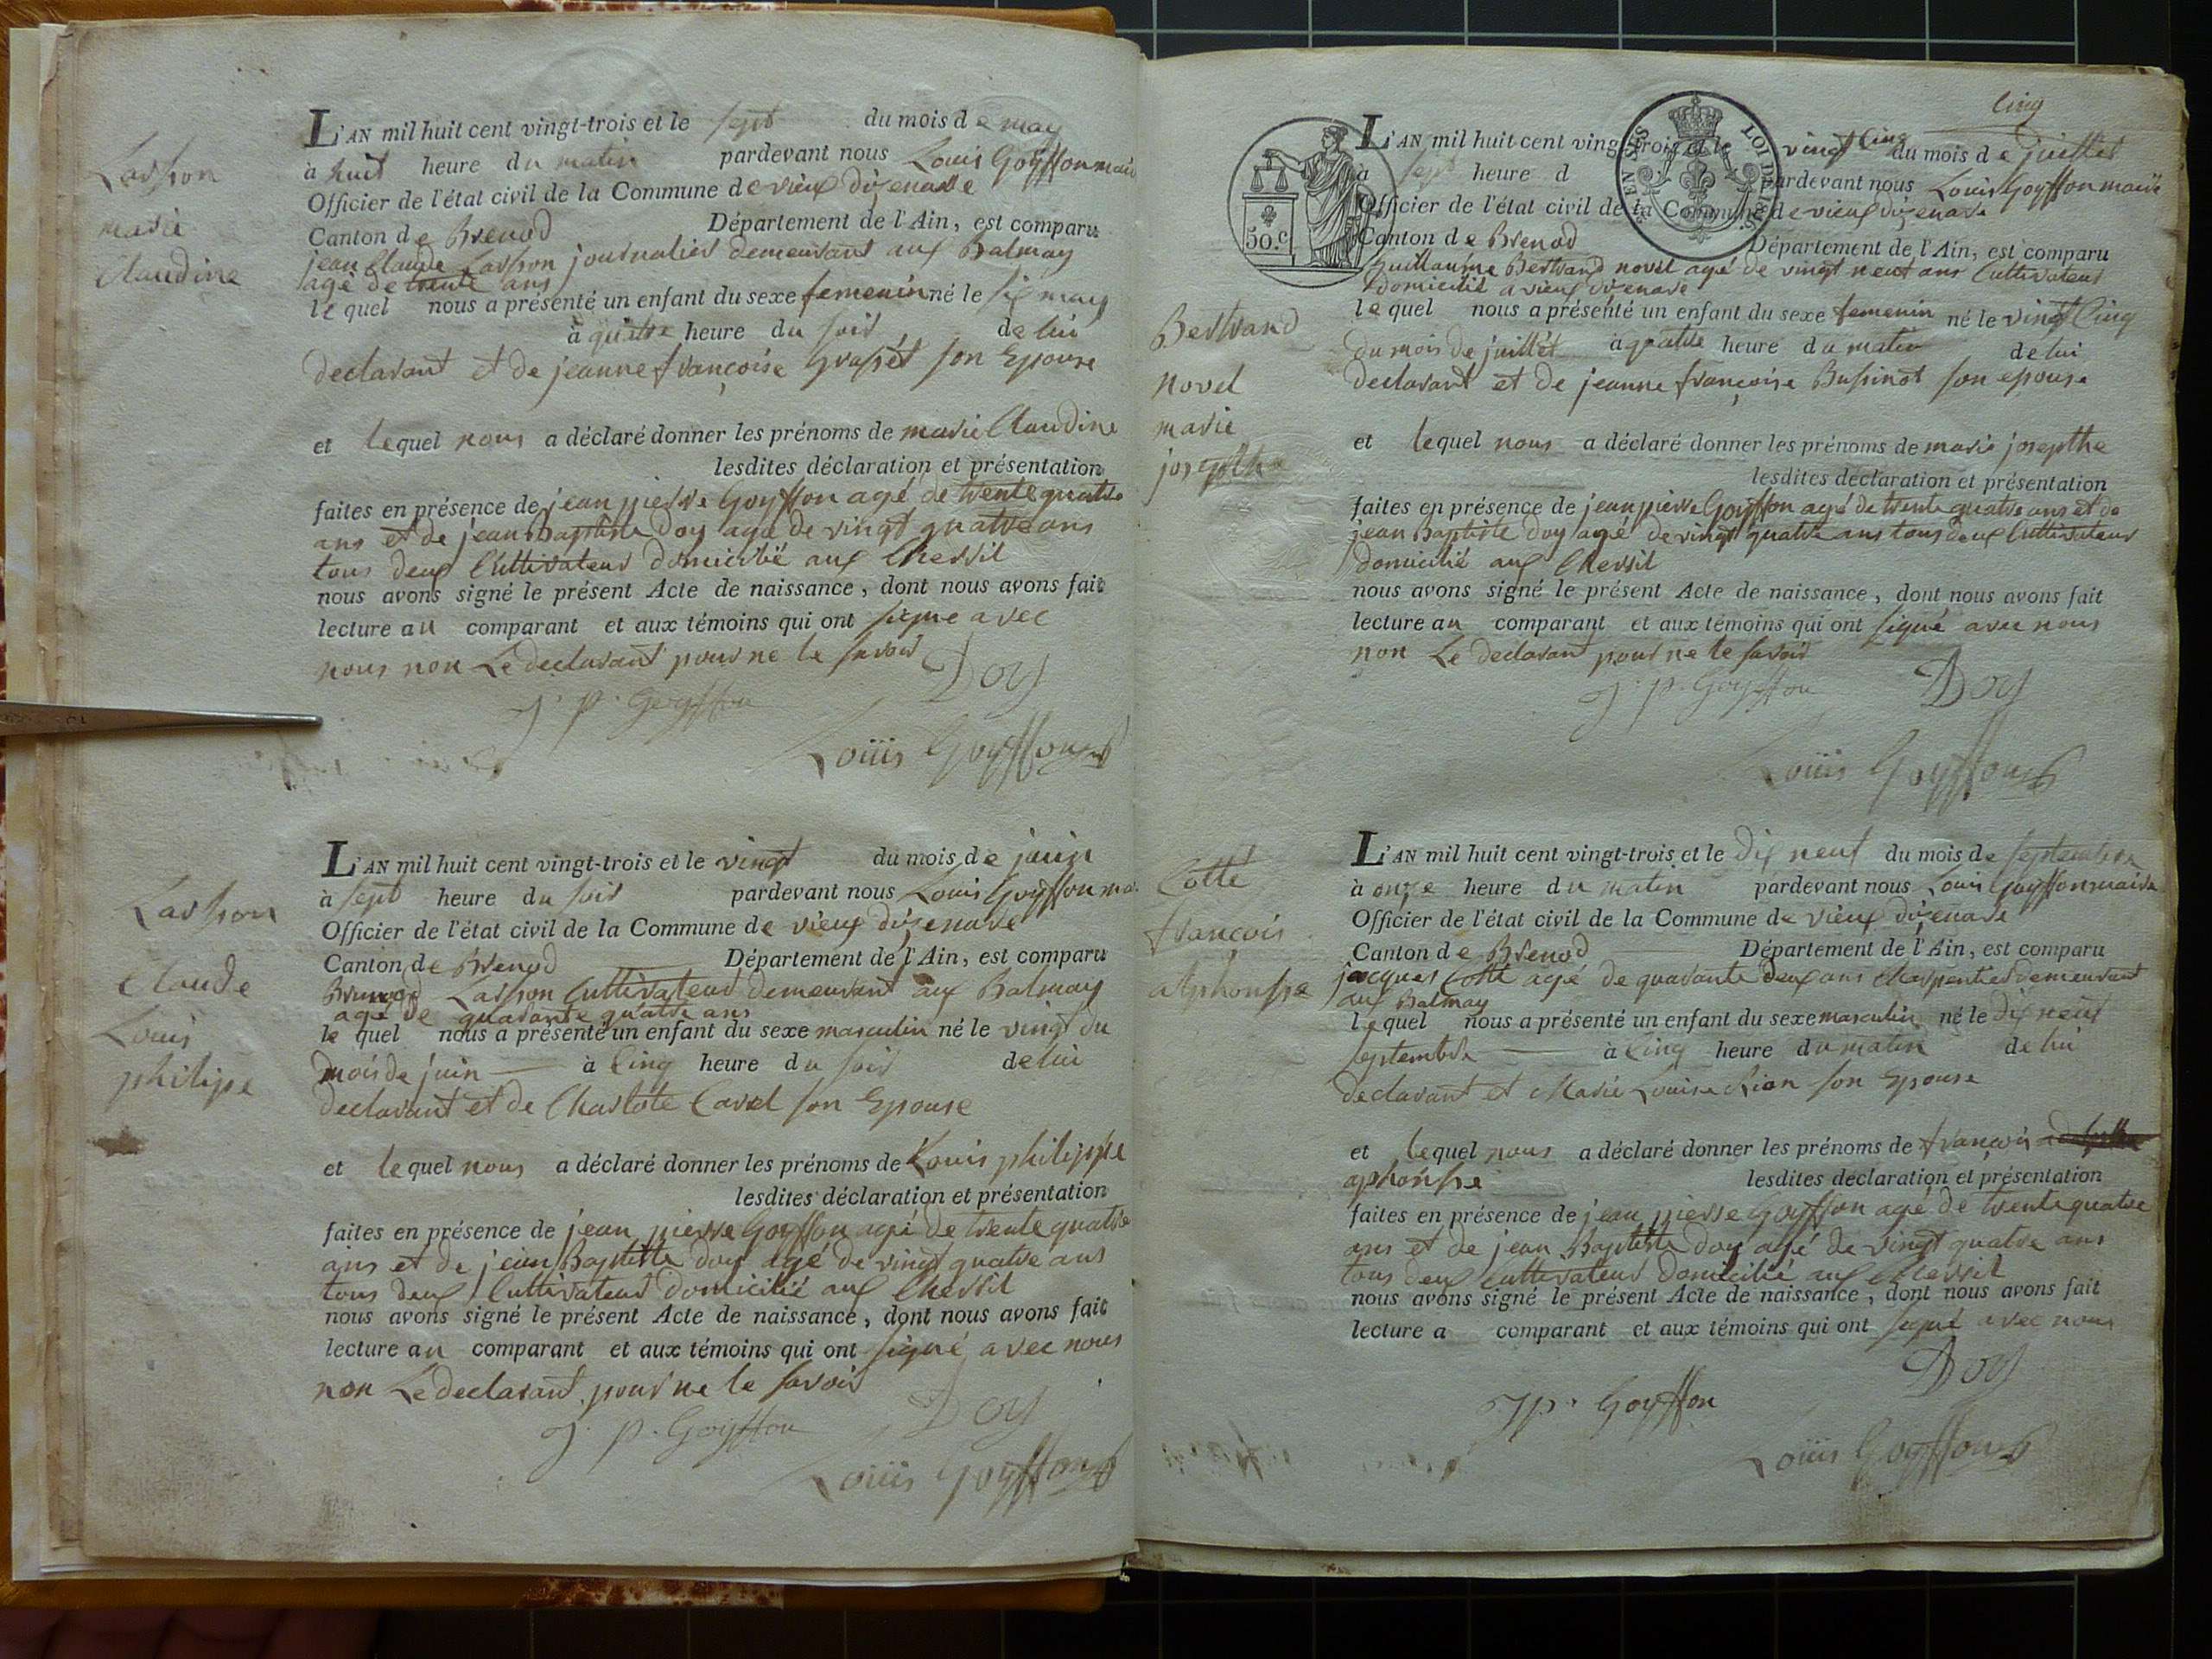 Larson
marie
Claudine
L'AN mil huit cent vingt-trois et le sept du mois de may
à huit heure du matin pardevant nous Louis Goyffon maire
Officier de l'état civil de la Commune de vieux dizenave
Canton de Brenod Département de l'Ain, est comparu
jean Claude Larson journalier demeurant aux Balmay
agé de trente ans
le quel nous a présenté un enfant du sexe femenin né le six may
à quatre heure du soir de lui
declarant et de jeanne françoise son Epouse
et lequel nous a déclaré donner les prénoms de marie Claudine
lesdites déclaration et présentation
faites en présence de jean pierre Goyffon agé de trente quatre
ans et de jean Baptiste Doy agé de vingt quatre ans
tous deux Cultivateur domicilié aux Chevril
nous avons signé le présent Acte de naissance, dont nous avons fait
lecture au comparant et aux témoins qui ont signe avec
nous non Le declarant pour ne le savoir
Doy
J. P. Goyffon
Louis Goyffon
Larson
Claude
Louis
philipe
L'AN mil huit cent vingt-trois et le vingt du mois de juin
à sept heure du soir pardevant nous Louis Goyffon ma
Officier de l'état civil de la Commune de vieux dizenave
Canton de Brenod Département de l'Ain, est comparu
Larson Cultivateur demeurant aux Balmay
agé de quarante quatre ans
le quel nous a présenté un enfant du sexe masculin né le vingt du
mois de juin à Cinq heure du soir de lui
declarant et de Charlote Carel son Epouse
et lequel nous a déclaré donner les prénoms de Louis philippe
lesdites déclaration et présentation
faites en présence de jean pierre Goyffon agé de trente quatre
ans et de jean Baptiste Doy agé de vingt quatre ans
tous deux Cultivateur domicilié aux Chevril
nous avons signé le présent Acte de naissance, dont nous avons fait
lecture au comparant et aux témoins qui ont signé avec nous
non Le declarant pour ne le savoir
Doy
J. P. Goyffon
Louis Goyffon
Cinq
50.c
Bertrand
novel
marie
josepthe
L'AN mil huit cent vingt-trois et le vingt Cinq du mois de juillet
à sept heure d pardevant nous Louis Goyffon maire
Officier de l'état civil de la Commune de vieux dizenave
Canton de Brenod Département de l'Ain, est comparu
Guillaume Bertrand novel agé de vingt neuf ans Cultivateur
domicilié a vieux dizenave
le quel nous a présenté un enfant du sexe femenin né le vingt Cinq
du mois de juillet à quatre heure du matin de lui
declarant et de jeanne françoise son epouse
et lequel nous a déclaré donner les prénoms de marie josepthe
lesdites déclaration et présentation
faites en présence de jean pierre Goyffon agé de trente quatre ans et de
jean Baptiste Doy agé de vingt quatre ans tous deux Cultivateur
domicilié aux Chevril
nous avons signé le présent Acte de naissance, dont nous avons fait
lecture au comparant et aux témoins qui ont signé avec nous
non Le declarant pour ne le savoir
J. P. Goyffon Doy
Louis Goyffon
Cotte
françois
alphonsse
L'AN mil huit cent vingt-trois et le Dix neuf du mois de septembre
à onze heure du matin pardevant nous Louis Goyffon maire
Officier de l'état civil de la Commune de vieux dizenave
Canton de Brenod Département de l'Ain, est comparu
jacques Cotte agé de quarante deux ans Charpentier demeurant
aux Balmay
le quel nous a présenté un enfant du sexe masculin né le Dix neuf
septembre à Cinq heure du matin de lui
declarant et Marie Louise son Epouse
et lequel nous a déclaré donner les prénoms de françois
aphonsse lesdites déclaration et présentation
faites en présence de jean pierre Goyffon agé de trente quatre
ans et de jean Baptiste Doy agé de vingt quatre ans
tous deux Cultivateur domicilié aux Chevril
nous avons signé le présent Acte de naissance, dont nous avons fait
lecture a comparant et aux témoins qui ont signé avec nous
Doy
J p. Goyffon
Louis Goyffon